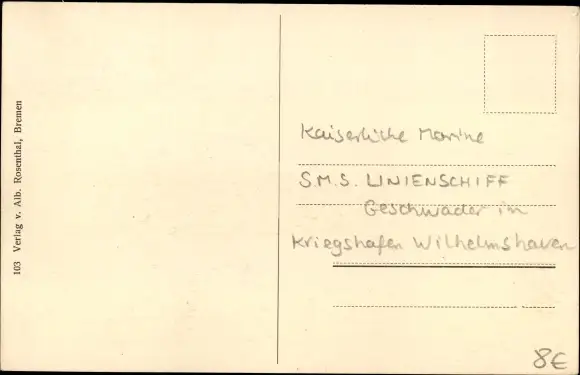 103 Verlag v. Alb. Rosenthal, Bremen
Kaiserliche Marine
S.M.S. LINIENSCHIFF
Geschwader im
Kriegshafen Wilhelmshaven
8€